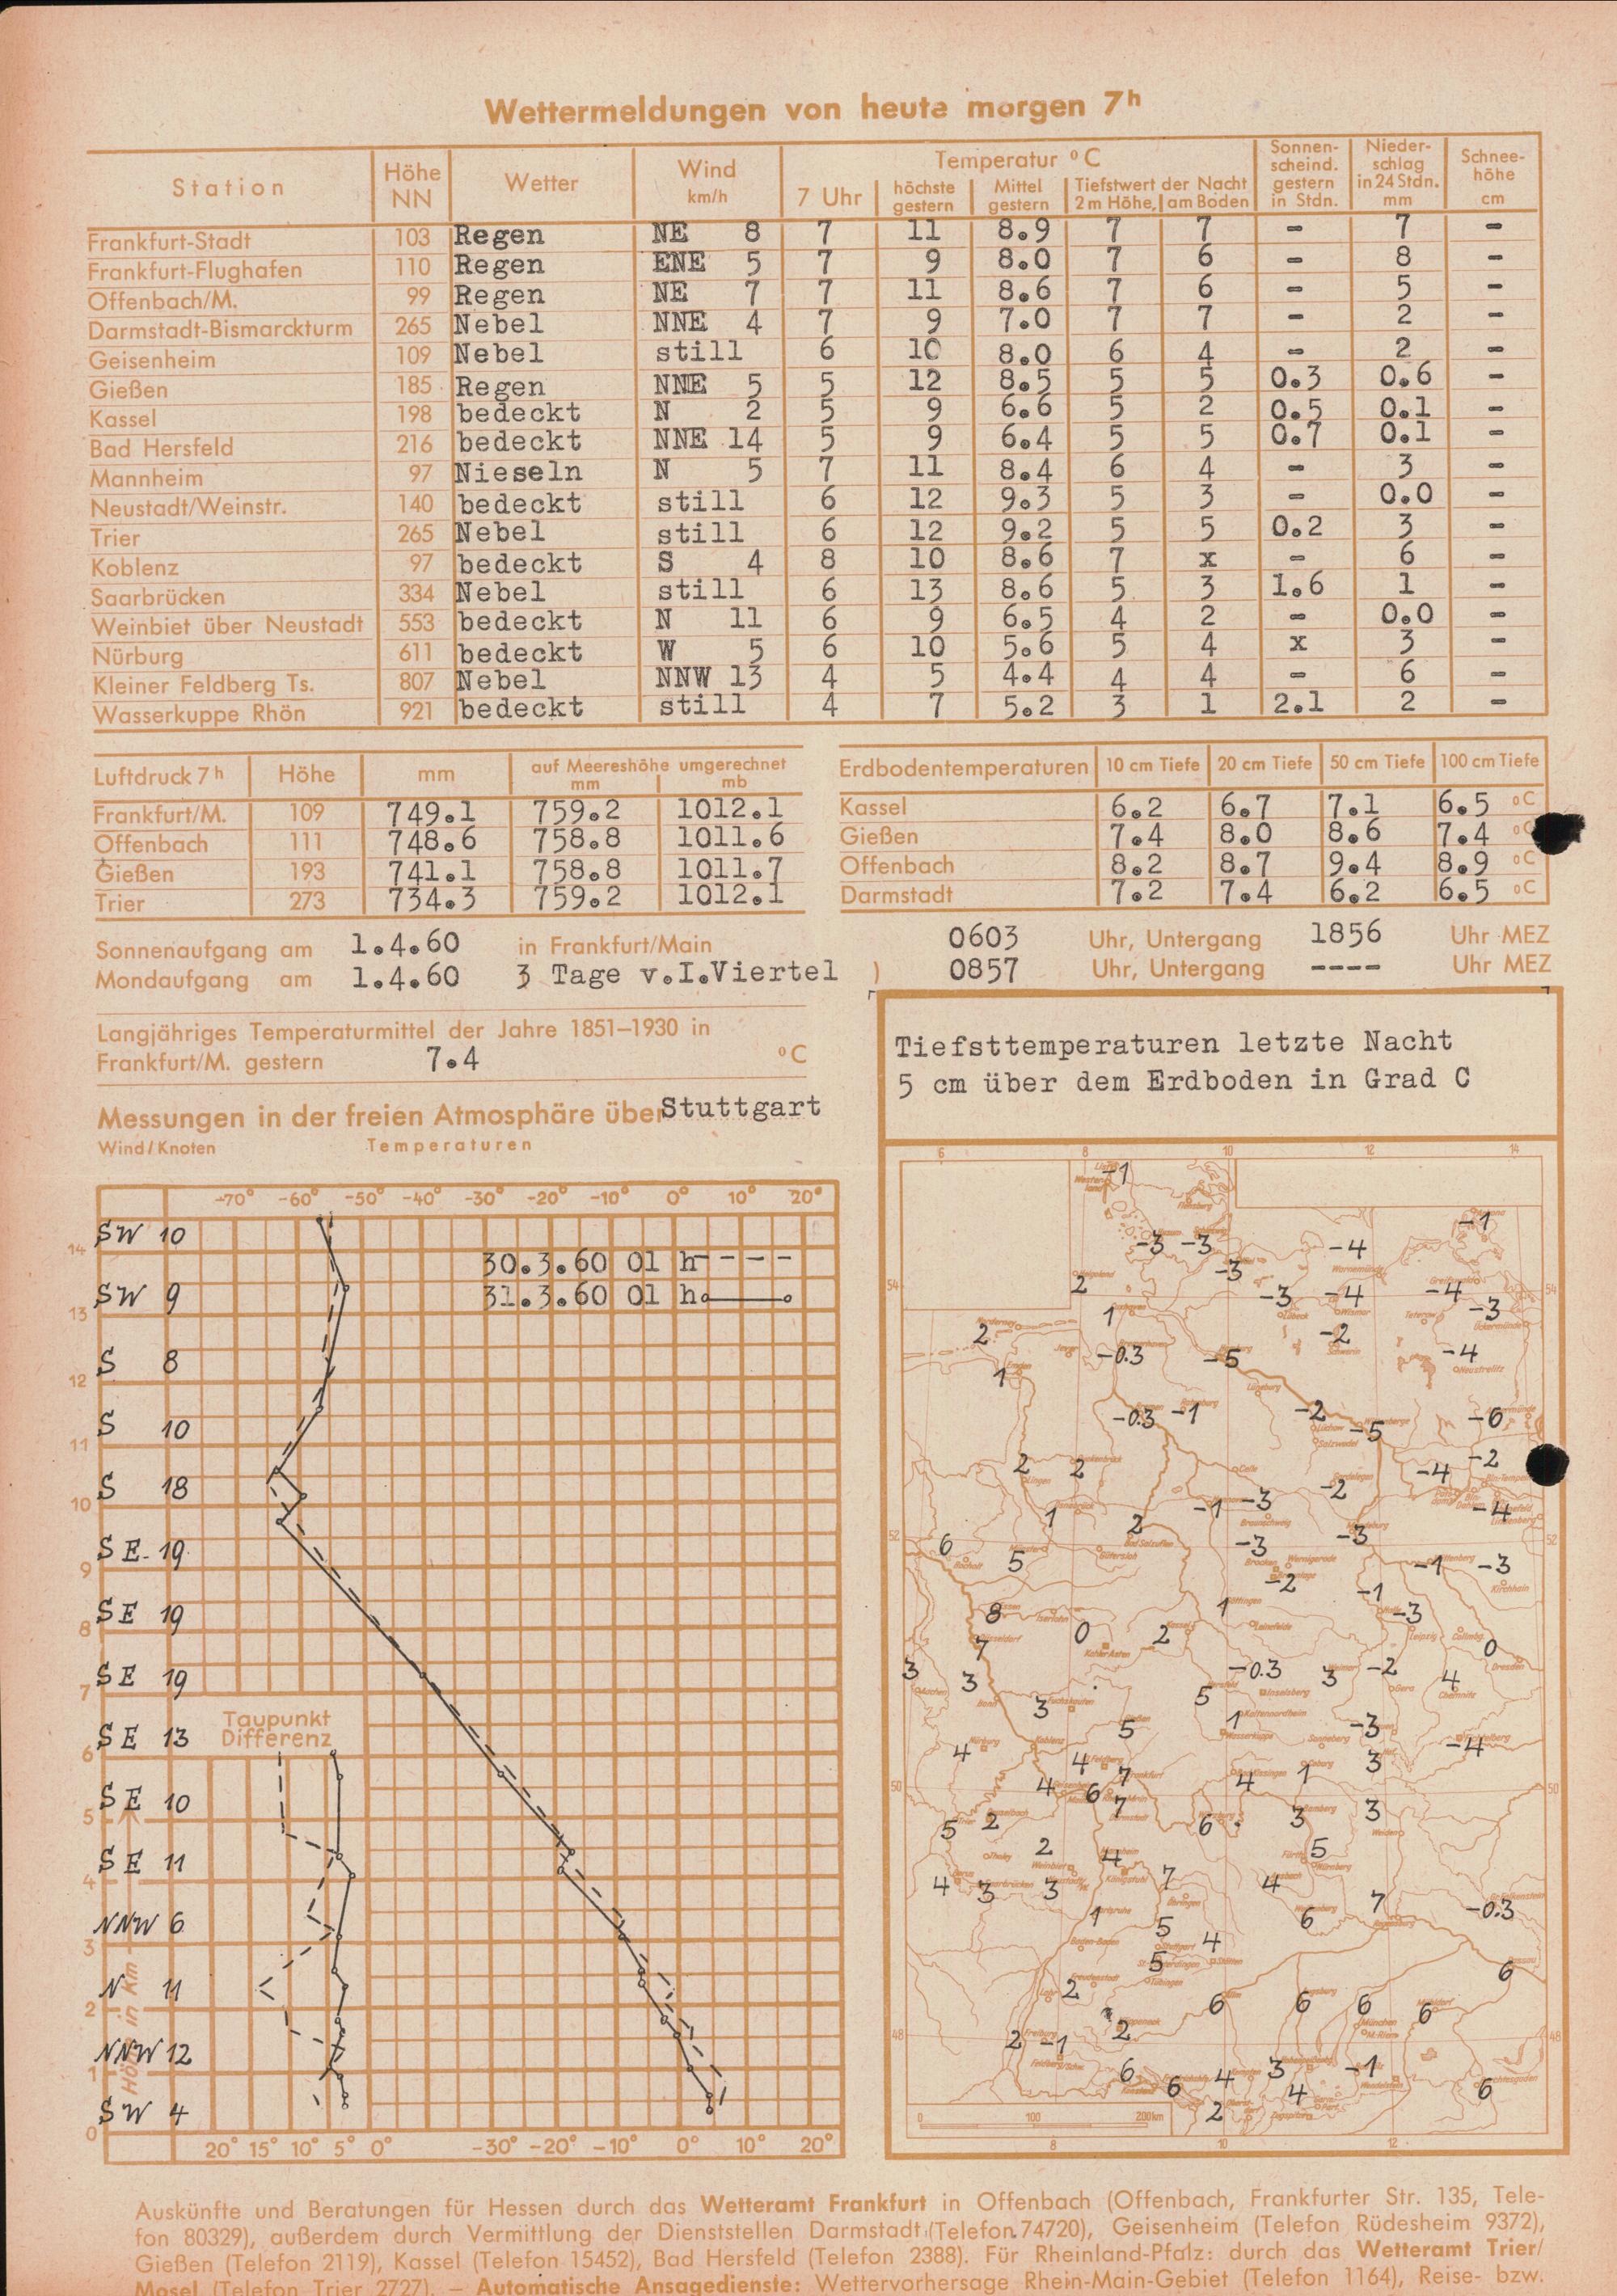 Wettermeldungen von heute morgen 7h
Station Höhe NN Wetter Wind km/h Temperatur °C Sonnenscheind. gestern in Stdn. Niederschlag in 24 Stdn. mm Schneehöhe cm
7 Uhr höchste gestern Mittel gestern Tiefstwert der Nacht 2 m Höhe, am Boden
Frankfurt-Stadt 103 Regen NE 8 7 11 8.9 7 7 - 7 -
Frankfurt-Flughafen 110 Regen ENE 5 7 9 8.0 7 6 - 8 -
Offenbach/M. 99 Regen NE 7 7 11 8.6 7 6 - 5 -
Darmstadt-Bismarckturm 265 Nebel NNE 4 7 9 7.0 7 7 - 2 -
Geisenheim 109 Nebel still 6 10 8.0 6 4 - 2 -
Gießen 185 Regen NNE 5 5 12 8.5 5 5 0.3 0.6 -
Kassel 198 bedeckt N 2 5 9 6.6 5 2 0.5 0.1 -
Bad Hersfeld 216 bedeckt NNE 14 5 9 6.4 5 5 0.7 0.1 -
Mannheim 97 Nieseln N 5 7 11 8.4 6 4 - 3 -
Neustadt/Weinstr. 140 bedeckt still 6 12 9.3 5 3 - 0.0 -
Trier 265 Nebel still 6 12 9.2 5 5 0.2 3 -
Koblenz 97 bedeckt S 4 8 10 8.6 7 x - 6 -
Saarbrücken 334 Nebel still 6 13 8.6 5 3 1.6 1 -
Weinbiet über Neustadt 553 bedeckt N 11 6 9 6.5 4 2 - 0.0 -
Nürburg 611 bedeckt W 5 6 10 5.6 5 4 x 3 -
Kleiner Feldberg Ts. 807 Nebel NNW 13 4 5 4.4 4 4 - 6 -
Wasserkuppe Rhön 921 bedeckt still 4 7 5.2 3 1 2.1 2 -
Luftdruck 7h Höhe mm auf Meereshöhe umgerechnet mm mb
Frankfurt/M. 109 749.1 759.2 1012.1
Offenbach 111 748.6 758.8 1011.6
Gießen 193 741.1 758.8 1011.7
Trier 273 734.3 759.2 1012.1
Erdbodentemperaturen 10 cm Tiefe 20 cm Tiefe 50 cm Tiefe 100 cm Tiefe
Kassel 6.2 6.7 7.1 6.5 °C
Gießen 7.4 8.0 8.6 7.4 °C
Offenbach 8.2 8.7 9.4 8.9 °C
Darmstadt 7.2 7.4 6.2 6.5 °C
Sonnenaufgang am 1.4.60 in Frankfurt/Main 0603 Uhr, Untergang 1856 Uhr MEZ
Mondaufgang am 1.4.60 3 Tage v.I.Viertel ) 0857 Uhr, Untergang ---- Uhr MEZ
Langjähriges Temperaturmittel der Jahre 1851–1930 in
Frankfurt/M. gestern 7.4 °C
Messungen in der freien Atmosphäre über Stuttgart
Wind/Knoten Temperaturen
-70° -60° -50° -40° -30° -20° -10° 0° 10° 20°
30.3.60 01 h----
31.3.60 01 h
SW 10
14
SW 9
13
S 8
12
S 10
11
S 18
10
SE 19
9
SE 19
8
SE 19
7
SE 13
6
SE 10
5
SE 11
4
NNW 6
3
N 11
2
NNW 12
1
SW 4
0
Taupunkt
Differenz
Höhe in km
20° 15° 10° 5° 0° -30° -20° -10° 0° 10° 20°
Tiefsttemperaturen letzte Nacht
5 cm über dem Erdboden in Grad C
6 8 10 12 14
-1
-1
-3 -3 -4
-3
2 -3 -4 -4 -3
1
2 -0.3 -5 -2 -4
1
-0.3 -1 -2 -5 -6
2 2 -2 -4 -2
1 2 -1 -3 -3 -4
6 5 -3 -2 -1 -3
8 1 -1 -3
7 0 2 0
3 3 -0.3 3 -2 4
3 5
5 1 -3 -4
4 4 7 4 1 3
4 6 7
5 2 6 3 3
2 4 5
4 3 3 7 4 7
1 5 6 -0.3
5 4
2 6
6 6 6 6
2 -1 2
6 6 4 3 -1 6
2 4
54 54
52 52
50 50
48 48
0 100 200km
8 10 12
Auskünfte und Beratungen für Hessen durch das Wetteramt Frankfurt in Offenbach (Offenbach, Frankfurter Str. 135, Tele-
fon 80329), außerdem durch Vermittlung der Dienststellen Darmstadt (Telefon 74720), Geisenheim (Telefon Rüdesheim 9372),
Gießen (Telefon 2119), Kassel (Telefon 15452), Bad Hersfeld (Telefon 2388). Für Rheinland-Pfalz: durch das Wetteramt Trier/
Mosel (Telefon Trier 2727). — Automatische Ansagedienste: Wettervorhersage Rhein-Main-Gebiet (Telefon 1164), Reise- bzw.